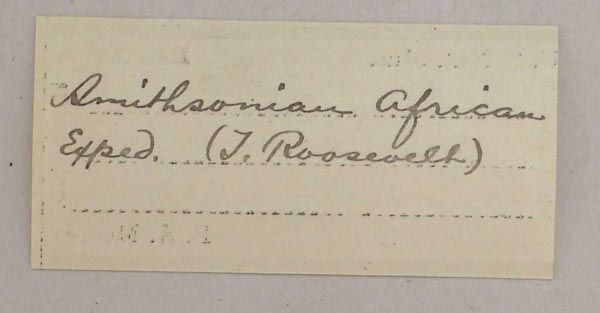 Smithsonian African
Exped. (T. Roosevelt)